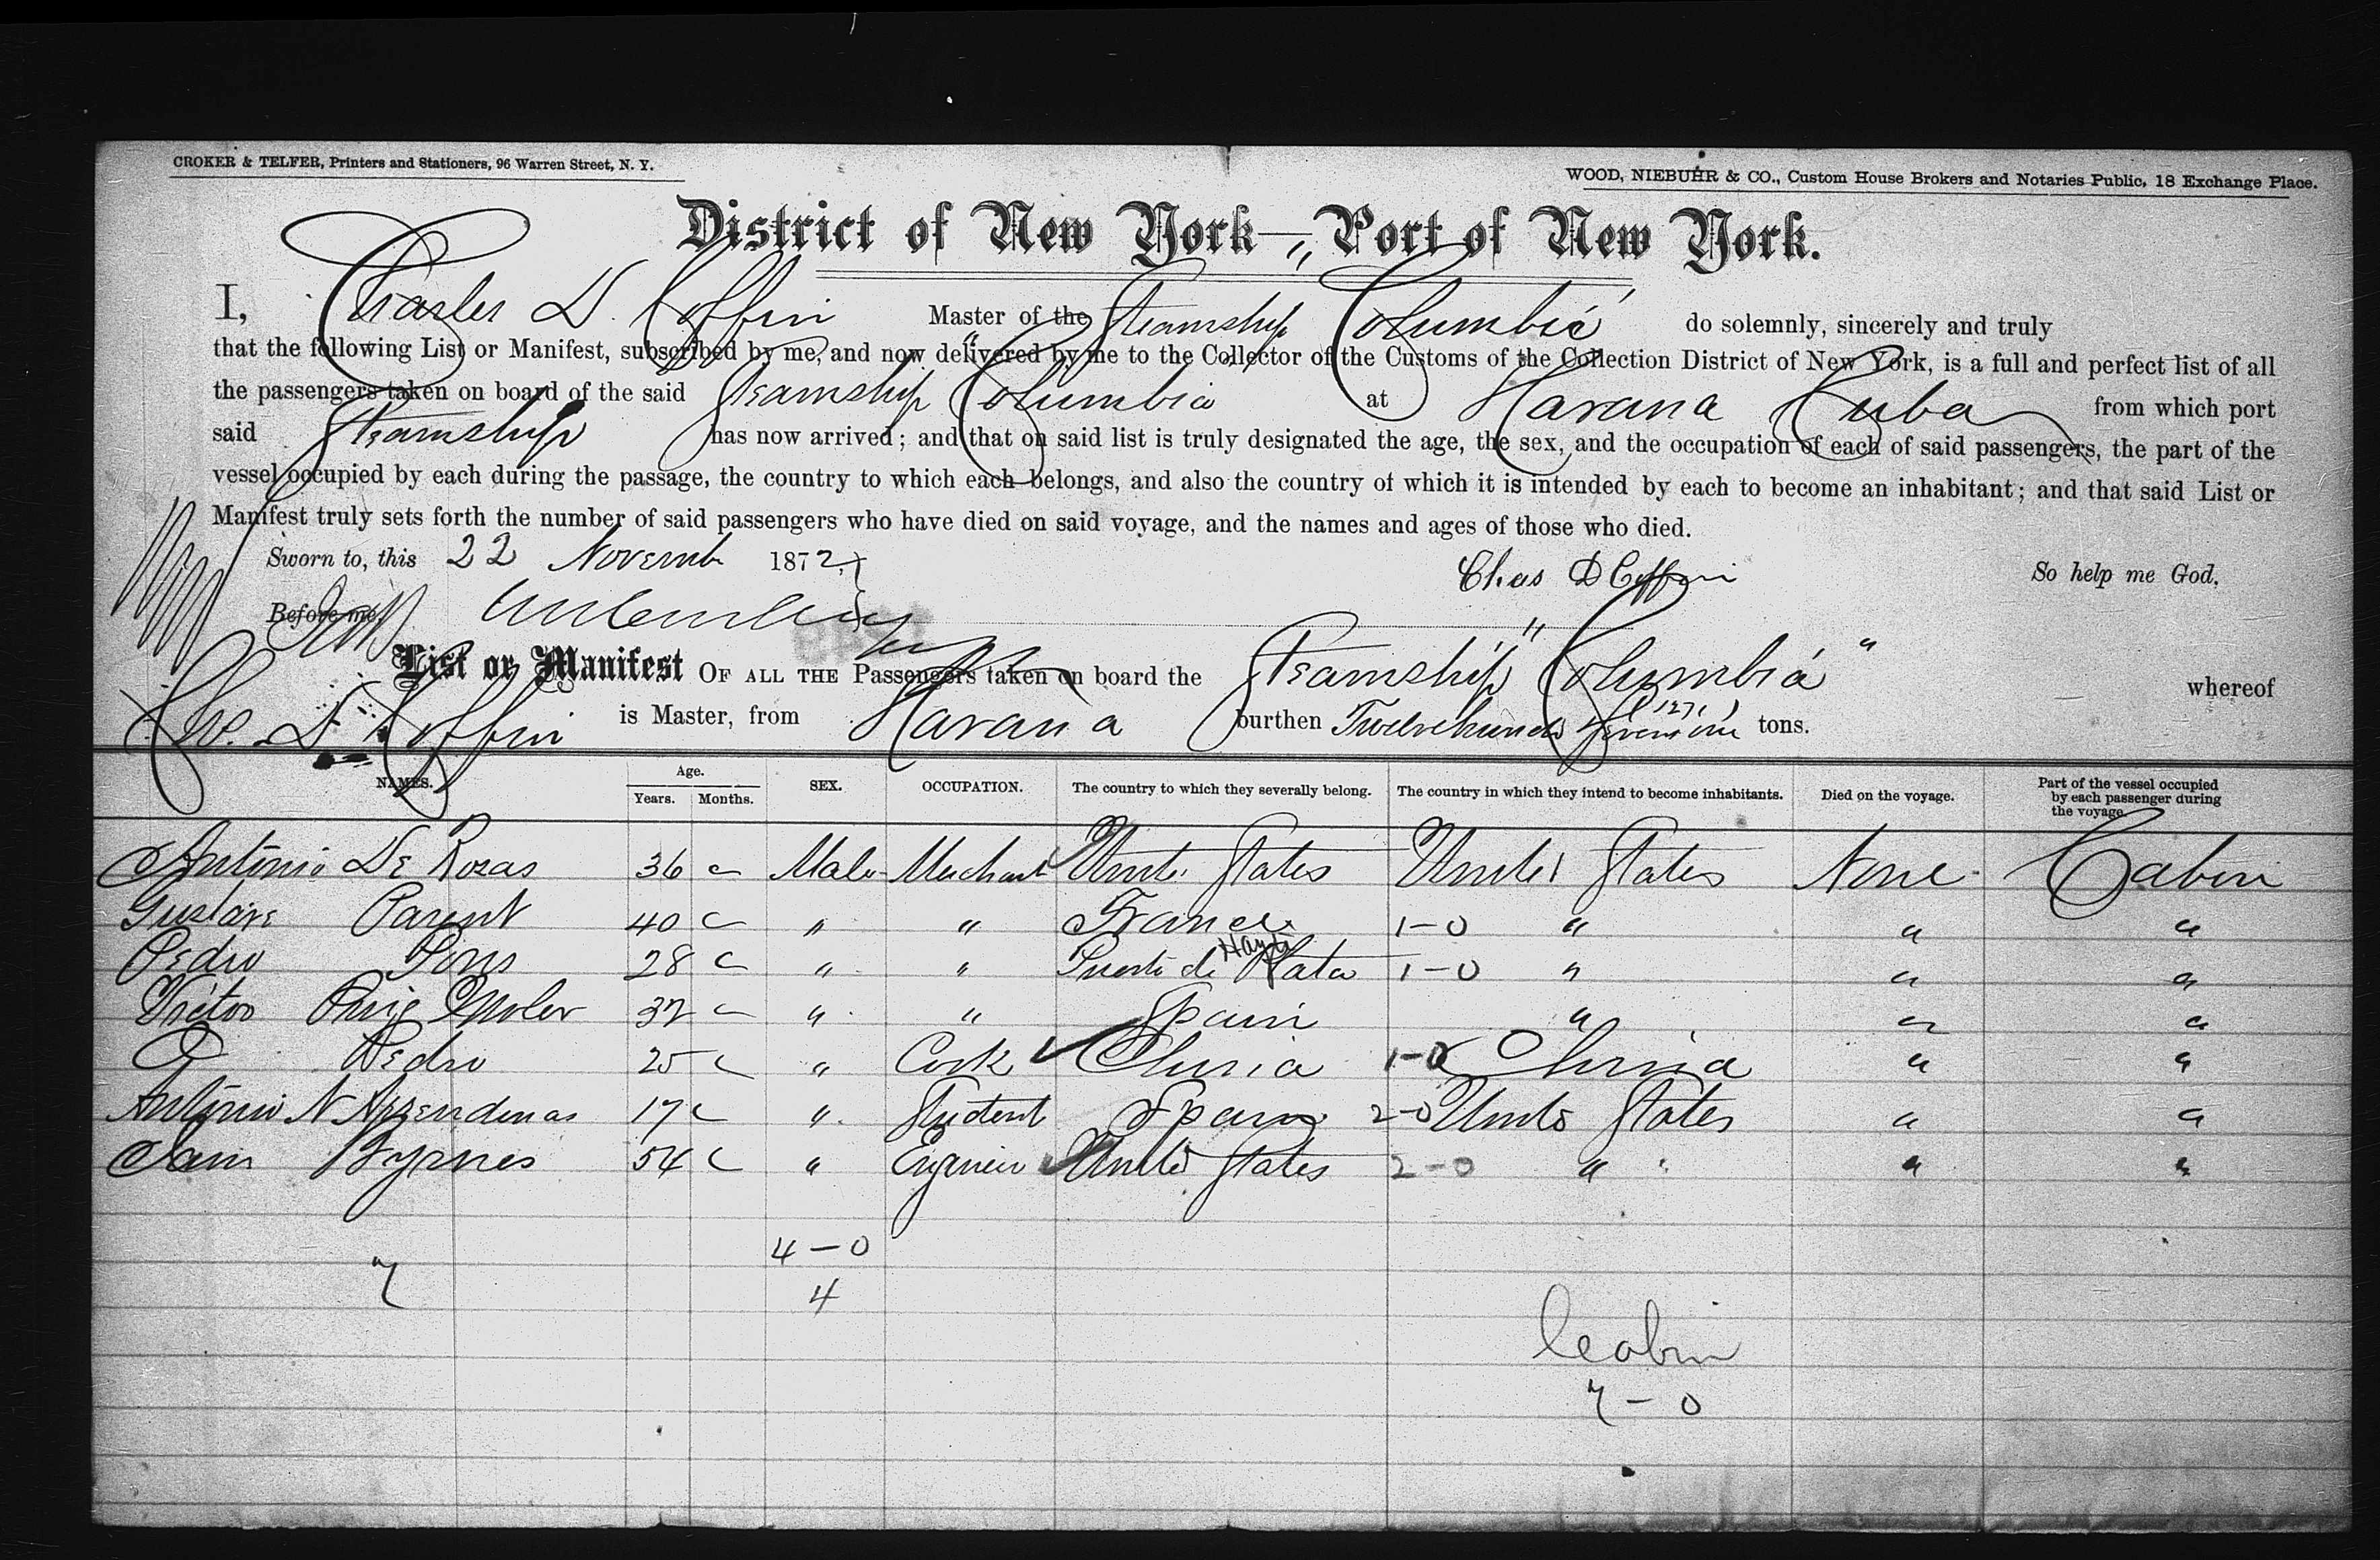 CROKER & TELFER, Printers and Stationers, 96 Warren Street, N. Y.
WOOD, NIEBUHR & CO., Custom House Brokers and Notaries Public, 18 Exchange Place.
District of New York—Port of New York.
I, Charles D. Coffin Master of the Steamship Columbia do solemnly, sincerely and truly
that the following List or Manifest, subscribed by me, and now delivered by me to the Collector of the Customs of the Collection District of New York, is a full and perfect list of all
the passengers taken on board of the said Steamship Columbia at Havana Cuba from which port
said Steamship has now arrived; and that on said list is truly designated the age, the sex, and the occupation of each of said passengers, the part of the
vessel occupied by each during the passage, the country to which each belongs, and also the country of which it is intended by each to become an inhabitant; and that said List or
Manifest truly sets forth the number of said passengers who have died on said voyage, and the names and ages of those who died.
Sworn to, this 22 Novemb 1872, Chas D Coffin So help me God,
Before me,
List or Manifest OF ALL THE Passengers taken on board the Steamship "Columbia" whereof
D Coffin is Master, from Havana burthen Twelve hund Seventy one (1271) tons.
NAMES. Age. Years. Months. SEX. OCCUPATION. The country to which they severally belong. The country in which they intend to become inhabitants. Died on the voyage. Part of the vessel occupied by each passenger during the voyage.
Antonio De Rozas 36 Male Merchant United States United States None Cabin
Gustave Parent 40 " " France 1-0 " " "
Pedro Pons 28 " " Puerto de Plata Hayti 1-0 " " "
Victor Puig 32 " " Spain " " "
Pedro 25 " Cook China 1-0 China " "
Antonio N 17 " Student Spain 2-0 United States " "
Sam Byrnes 54 " Engineer United States 2-0 " " "
4-0
7
4
Cabin
7-0